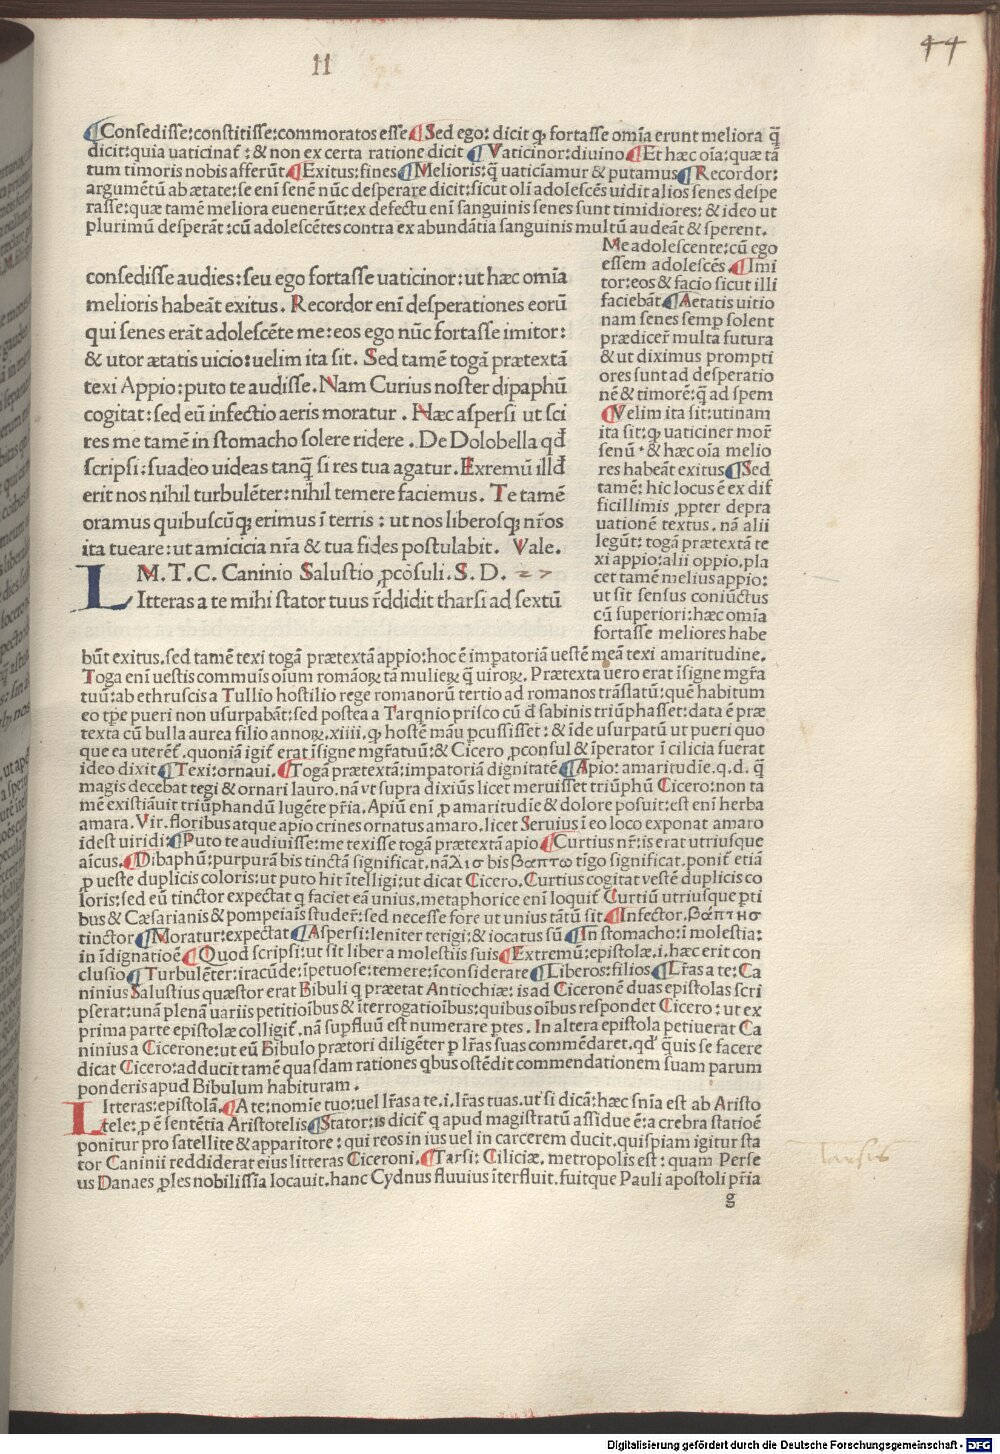 II
44
¶Consedisse:constitisse:commoratos esse¶Sed ego: dicit ꝙ fortasse omīa erunt meliora q̄
dicit:quia uaticinat̄ : & non ex certa ratione dicit ¶Vaticinor:diuino¶Et hæc oīa:quæ tā
tum timoris nobis afferūt.¶Exitus:fines¶Melioris:q̄ uaticīamur & putamus¶Recordor:
argumētū ab ætate:se enī senē nūc desperare dicit:sicut oli adolescēs uidit alios senes despe
rasse:quæ tamē meliora euenerūt:ex defectu enī sanguinis senes sunt timidiores: & ideo ut
plurimū desperāt:cū adolescētes contra ex abundātia sanguinis multū audeāt & sperent.
Me adolescente:cū ego
essem adolescēs.¶Imi
tor:eos & facio sicut illi
faciebāt¶Aetatis uitio
nam senes semp solent
prædicer̄ multa futura
& ut diximus prompti
ores sunt ad desperatio
nē & timorē:q̄ ad spem
¶Velim ita sit:utinam
ita sit:ꝙ uaticiner mor̄
senū & hæc oīa melio
res habeāt exitus¶Sed
tamē: hic locus ē ex dif
ficillimis ꝓpter depra
uationē textus. nā alii
legūt: togā prætextā te
xi appio:alii oppio,pla
cet tamē melius appio:
ut sit sensus coniūctus
cū superiori:hæc omīa
fortasse meliores habe
consedisse audies:seu ego fortasse uaticinor:ut hæc omīa
melioris habeāt exitus. Recordor enī desperationes eorū
qui senes erāt adolescēte me:eos ego nūc fortasse imitor:
& utor ætatis uicio:uelim ita sit. Sed tamē togā prætextā
texi Appio:puto te audisse.Nam Curius noster dipaphū
cogitat:sed eū infectio aeris moratur . Hæc aspersi ut sci
res me tamē in stomacho solere ridere .De Dolobella qd̄
scripsi:suadeo uideas tanq̄ si res tua agatur.Exremū illd̄
erit nos nihil turbulēter:nihil temere faciemus. Te tamē
oramus quibuscūqꝫ erimus ī terris : ut nos liberosqꝫ nr̄os
ita tueare:ut amicicia nr̄a & tua fides postulabit. Vale.
M.T.C. Caninio Salustio ꝓcōsuli.S.D.
LItteras a te mihi stator tuus r̄ddidit tharsi ad sextū
būt exitus.sed tamē texi togā prætextā appio:hoc ē impatoriā uestē meā texi amaritudine.
Toga enī uestis communis oīum romāoꝝ tā mulieꝝ q̄ uiroꝝ. Prætexta uero erat īsigne mgr̄a
tuū:ab ethruscis a Tullio hostilio rege romanorū tertio ad romanos trāslatū:quē habitum
eo tp̄e pueri non usurpabāt:sed postea a Tarqnio prisco cū d̄ sabinis triūphasset:data ē præ
texta cū bulla aurea filio annoꝝ.xiiii.ꝙ hostē māu ꝑcussisset : & īde usurpatū ut pueri quo
que ea uterēt̄.quoniā igit̄ erat īsigne mgr̄atuū:& Cicero ꝓconsul & īperator ī cilicia fuerat
ideo dixit¶Texi:ornaui.¶Togā prætextā:impatoriā dignitatē¶Apio: amaritudīe.q.d. q̄
magis decebat tegi & ornari lauro.nā vt supra dixiūs licet meruisset triūphū Cicero:non ta
mē existiāuit triūphandū lugēte pr̄ia. Apiū enī ꝓ amaritudīe & dolore posuit:est enī herba
amara.Vir.floribus atque apio crines ornatus amaro.licet Seruius ī eo loco exponat amaro
idest uiridi:¶Puto te audiuisse:me texisse togā prætextā apio¶Curtius nr̄:is erat utriusque
aīcus.¶Dibaphū:purpurā bis tinctā significat.nā λισ bis βαπτω tīgo significat.ponit̄ etiā
ꝓ ueste duplicis coloris:ut puto hit ītelligi:ut dicat Cicero.Curtius cogitat vestē duplicis co
loris:sed eū tinctor expectat q faciet eā unius.metaphorice enī loquit̄ Curtiū utriusque ꝑti
bus & Cæsarianis & pompeiais studer̄:sed necesse fore ut unius tātū sit.¶Infector.βαπτησ
tinctor¶Moratur:expectat¶Aspersi:leniter tetigi:& iocatus sū¶In stomacho:ī molestia:
in īdignatioē¶Quod scripsi:ut sit liber a molestiis suis¶Extremū:epistolæ.i.hæc erit con
clusio¶Turbulēter:iracūde:īpetuose:temere:īconsiderate¶Liberos:filios¶Lr̄as a te: Ca
ninius Salustius quæstor erat Bibuli q præetat Antiochiæ: is ad Ciceronē duas epistolas scri
pserat:unā plenā uariis petitioībus & īterrogatioībus:quibus oībus respondet Cicero: ut ex
prima parte epistolæ colligit̄.nā supfluū est numerare ꝑtes. In altera epistola petiuerat Ca
ninius a Cicerone:ut eū Bibulo prætori diligēter ꝑ lr̄as suas commēdaret.qd̄ q̄uis se facere
dicat Cicero:adducit tamē quasdam rationes qbus ostēdit commendationem suam parum
ponderis apud Bibulum habituram .
LItteras:epistolā.¶A te:nomīe tuo:uel lr̄as a te.i.lr̄as tuas.ut si dicā:hæc sn̄ia est ab Aristo
tele: ꝑ ē sentētia Aristotelis¶Stator:is dicit̄ q apud magistratū assidue ē:a crebra statioē
ponitur pro satellite & apparitore : qui reos in ius uel in carcerem ducit.quispiam igitur sta
tor Caninii reddiderat eius litteras Ciceroni.¶Tarsi: Ciliciæ. metropolis est: quam Perse
us Danaes ꝓles nobilissīa locauit.hanc Cydnus fluuius īterfluit.fuitque Pauli apostoli pr̄ia
tarsus
g
Digitalisierung gefördert durch die Deutsche Forschungsgemeinschaft - DFG